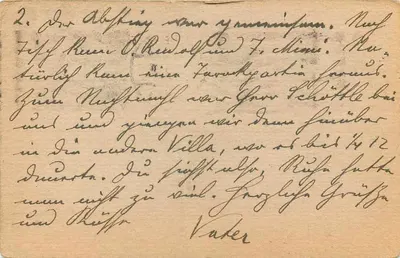 2. Der Abstieg war gemeinsam. Nach
Tisch kam O. Rudolf und T. Mimi. Na-
türlich kam eine Tarokpartie heraus.
Zum Nachtmahl war Herr Schöttle bei
uns und gingen wir dann hinüber
in die andere Villa, wo es bis 1/4 12
dauerte. Du siehst also, Ruhe hatte
man nicht zu viel. Herzliche Grüße
und Küsse
Vater